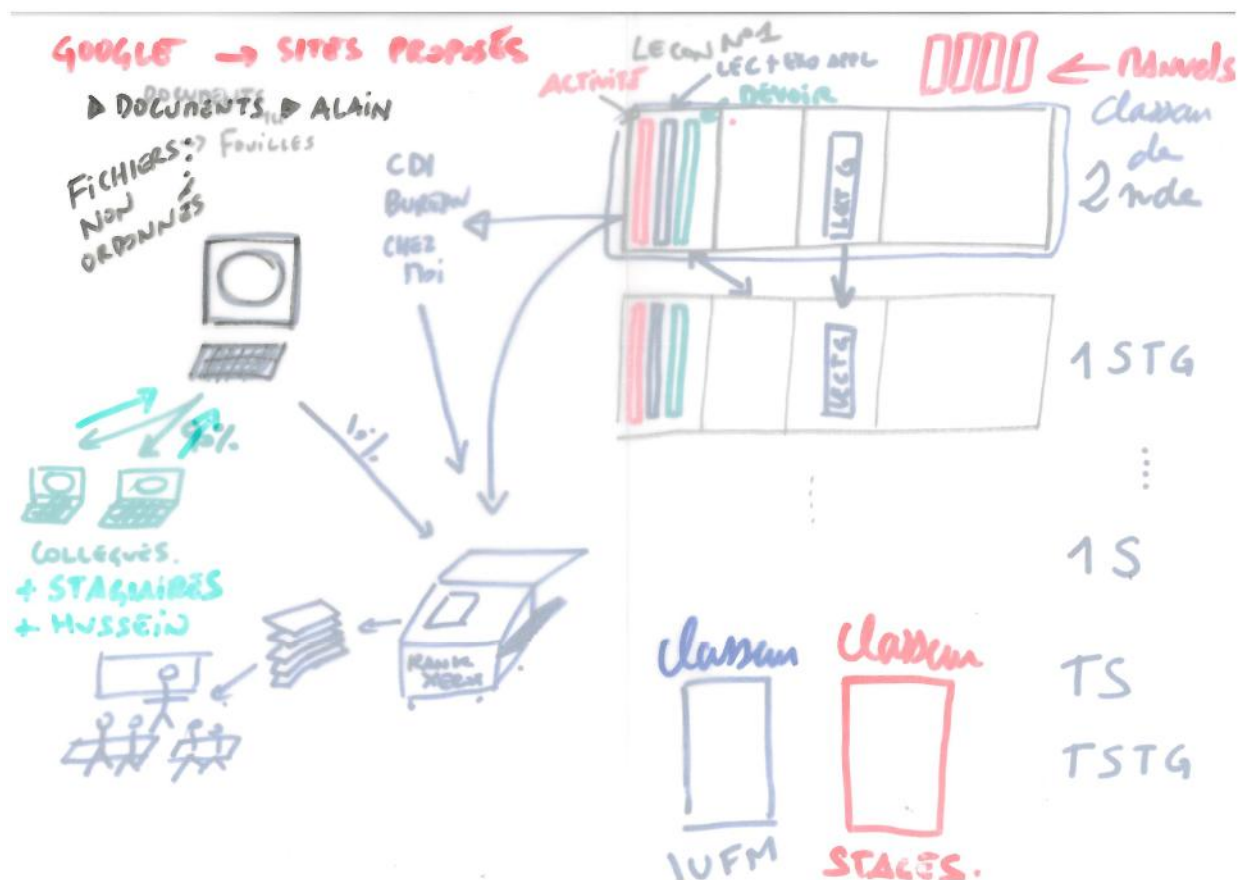 GOOGLE → SITES PROPOSÉS
DOCUMENTS
▶ DOCUMENTS ▶ ALAIN
FICHIERS
NON
ORDONNÉS
→ FOUILLES
CDI
BUREAU
CHEZ
MOI
10%
90%
COLLEGUES.
+ STAGIAIRES
+ HUSSEIN
RANK
XEROX
LECON N°1
ACTIVITÉ
LEC + EXO APPL
DEVOIR
← Manuels
Classeur
de
2nde
LECT G
LECT G
1 STG
1 S
TS
TSTG
Classeur
IUFM
Classeur
STAGES.